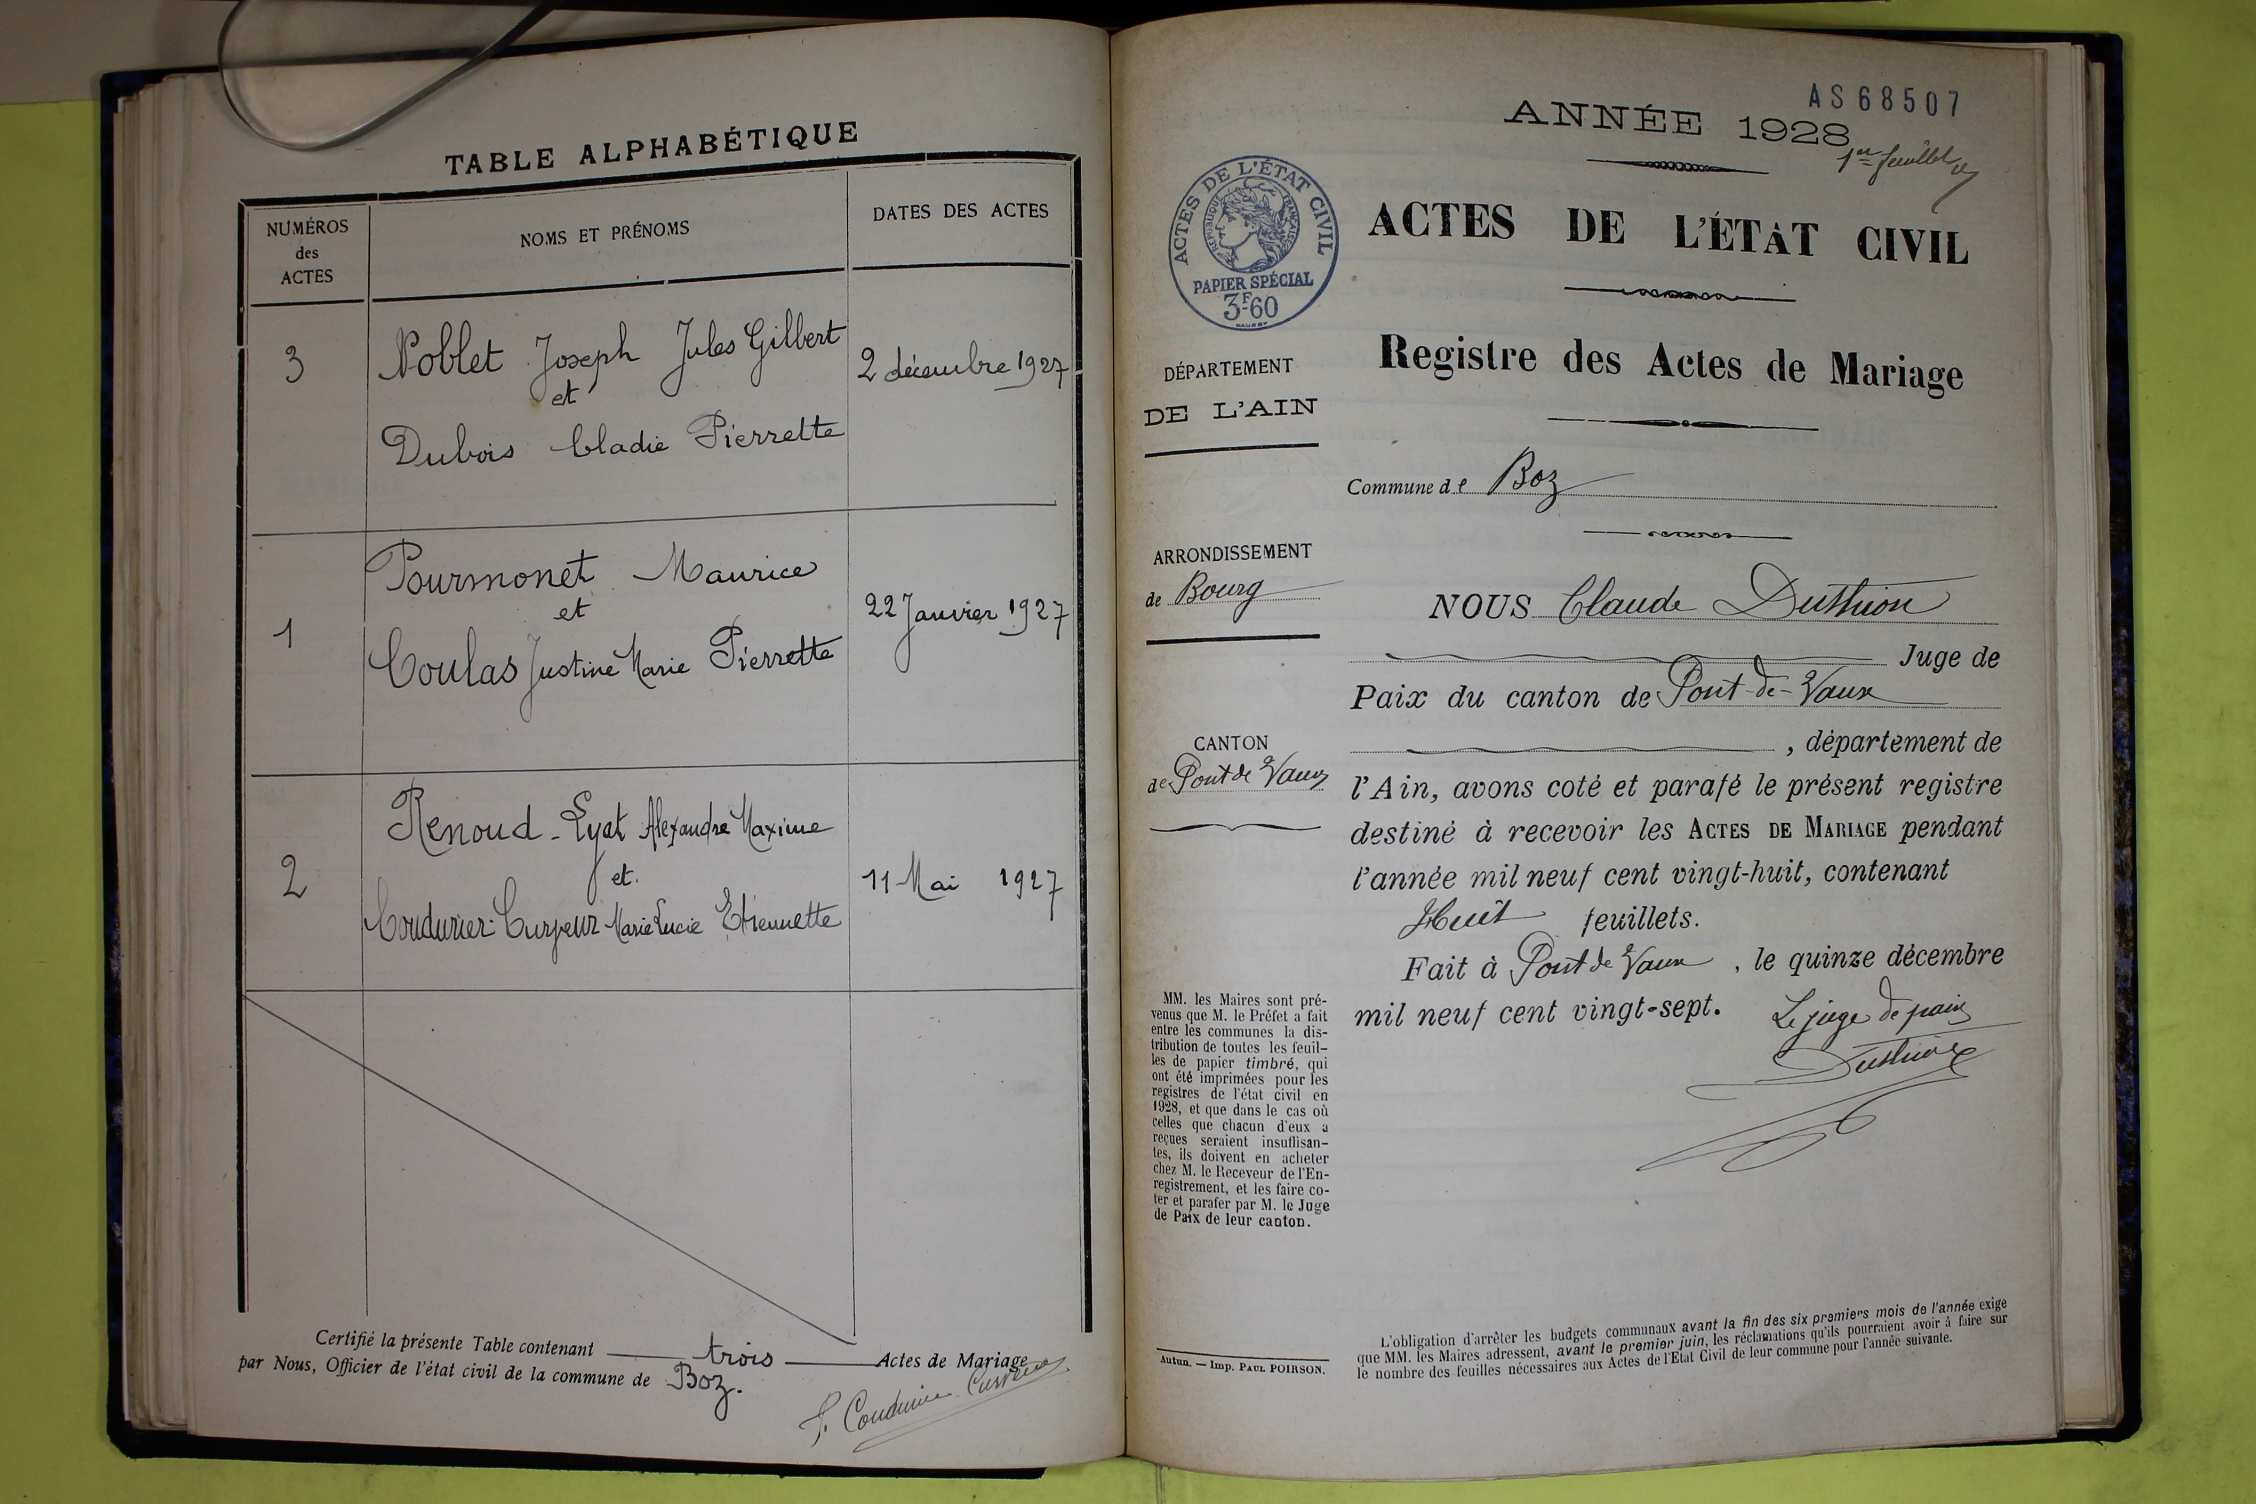 TABLE ALPHABÉTIQUE
NUMÉROS
des
ACTES
NOMS ET PRÉNOMS
DATES DES ACTES
3
Noblet Joseph Jules Gilbert
et
Dubois Cladie Pierrette
2 décembre 1927
1
Pourmonet Maurice
et
Coulas Justine Marie Pierrette
22 Janvier 1927
2
Renoud-Lyat Alexandre Maxime
et
Coudurier-Curveur Marie Lucie Etiennette
11 Mai 1927
Certifié la présente Table contenant trois Actes de Mariage
par Nous, Officier de l'état civil de la commune de Boz.
F. Coudurier Curveur
AS 68507
ANNÉE 1928
1er feuillet
ACTES DE L'ÉTAT CIVIL
RÉPUBLIQUE FRANÇAISE
PAPIER SPÉCIAL
3F60
ACTES DE L'ÉTAT CIVIL
Registre des Actes de Mariage
DÉPARTEMENT
DE L'AIN
Commune de Boz
ARRONDISSEMENT
de Bourg
CANTON
de Pont de Vaux
NOUS Claude Duthion
Juge de
Paix du canton de Pont-de-Vaux
, département de
l'Ain, avons coté et parafé le présent registre
destiné à recevoir les ACTES DE MARIAGE pendant
l'année mil neuf cent vingt-huit, contenant
Huit feuillets.
Fait à Pont de Vaux, le quinze décembre
mil neuf cent vingt-sept.
Le juge de paix
Duthion
MM. les Maires sont pré-
venus que M. le Préfet a fait
entre les communes la dis-
tribution de toutes les feuil-
les de papier timbré, qui
ont été imprimées pour les
registres de l'état civil en
1928, et que dans le cas où
celles que chacun d'eux a
reçues seraient insuffisan-
tes, ils doivent en acheter
chez M. le Receveur de l'En-
registrement, et les faire co-
ter et parafer par M. le Juge
de Paix de leur canton.
Autun. — Imp. PAUL POIRSON.
L'obligation d'arrêter les budgets communaux avant la fin des six premiers mois de l'année exige
que MM. les Maires adressent, avant le premier juin, les réclamations qu'ils pourraient avoir à faire sur
le nombre des feuilles nécessaires aux Actes de l'Etat Civil de leur commune pour l'année suivante.